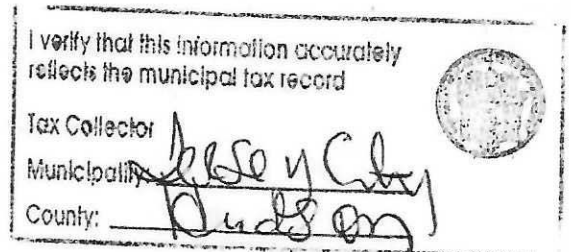 I verify that this information accurately
reflects the municipal tax record
Tax Collector
Municipality Jersey City
County: Hudson